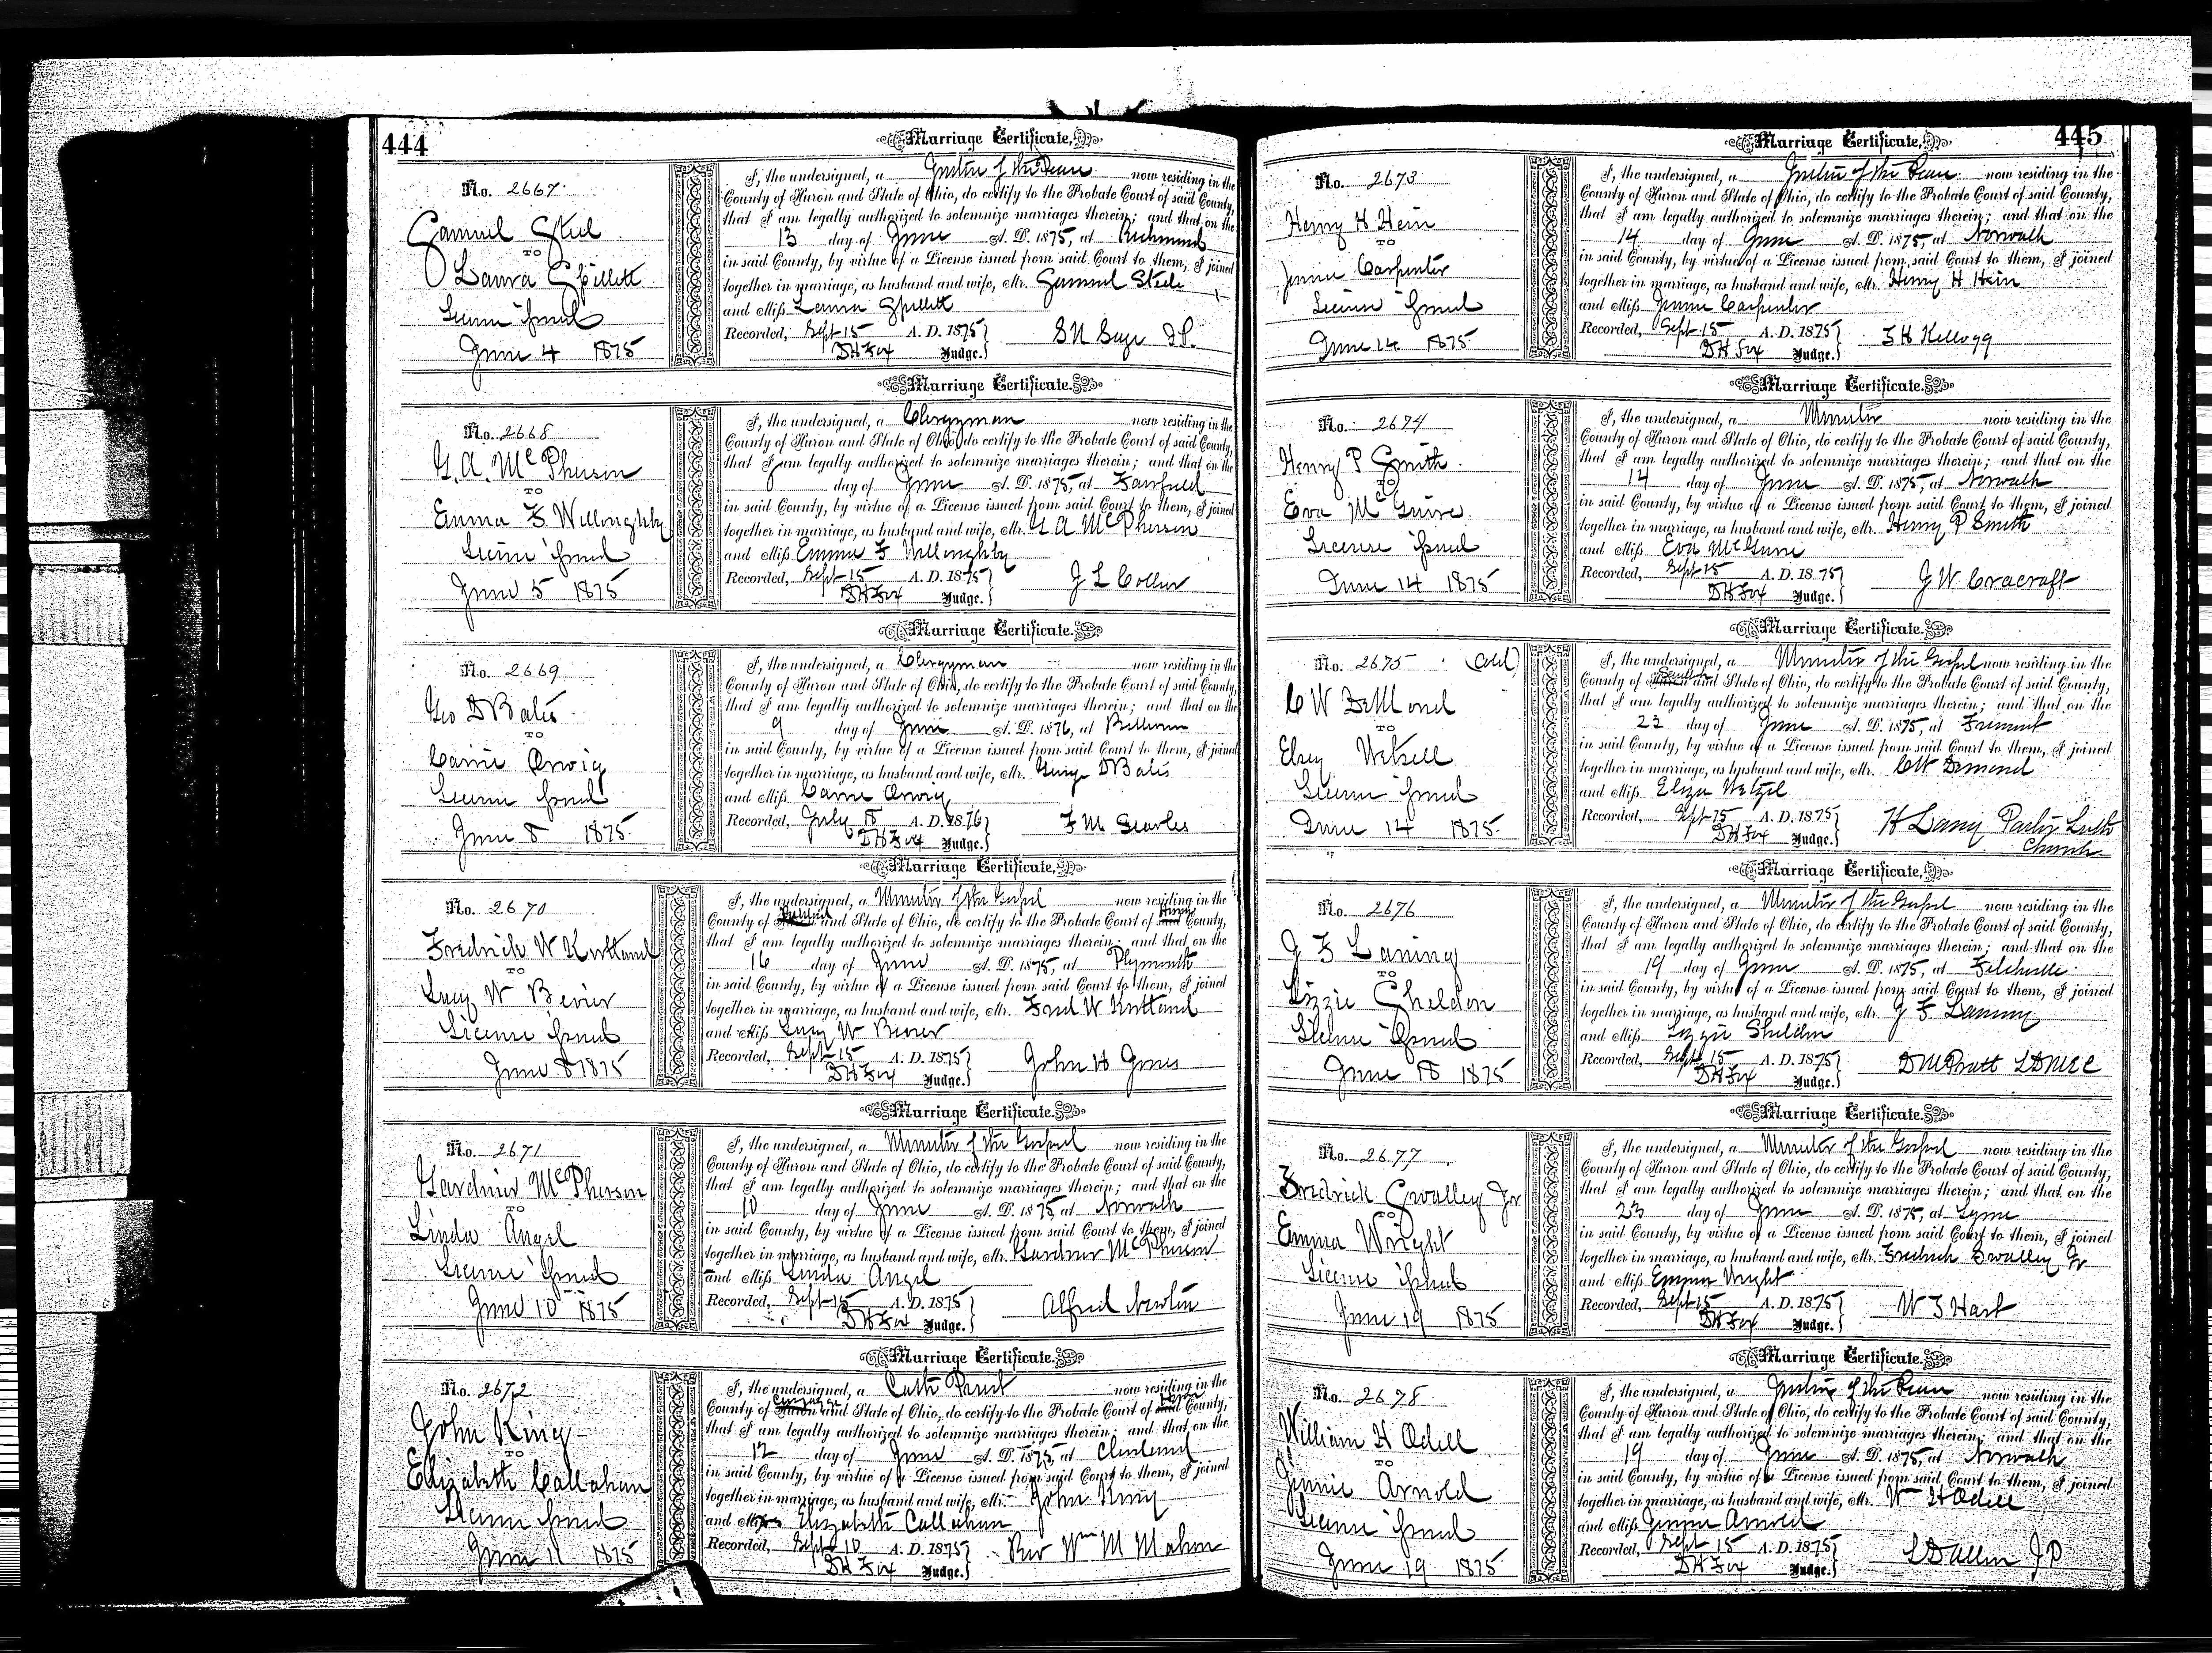 444
Marriage Certificate.
No. 2667.
Samuel Steel
TO
Laura Spillett
License Issued
June 4 1875
I, the undersigned, a Justice of the Peace now residing in the
County of Huron and State of Ohio, do certify to the Probate Court of said County,
that I am legally authorized to solemnize marriages therein; and that on the
13 day of June A. D. 1875, at Richmond
in said County, by virtue of a License issued from said Court to them, I joined
together in marriage, as husband and wife, Mr. Samuel Steele
and Miss Laura Spillett
Recorded, Sept 15 A. D. 1875
D H Fox Judge.
S N Sage J P.
Marriage Certificate.
No. 2668
G. A. McPherson
TO
Emma F Willoughby
License Issued
June 5 1875
I, the undersigned, a Clergyman now residing in the
County of Huron and State of Ohio, do certify to the Probate Court of said County,
that I am legally authorized to solemnize marriages therein; and that on the
day of June A. D. 1875, at Fairfield
in said County, by virtue of a License issued from said Court to them, I joined
together in marriage, as husband and wife, Mr. G A McPherson
and Miss Emma F Willoughby
Recorded, Sept 15 A. D. 1875
D H Fox Judge.
J L Collier
Marriage Certificate.
No. 2669
Geo D Bates
TO
Carrie Orwig
License Issued
June 8 1875
I, the undersigned, a Clergyman now residing in the
County of Huron and State of Ohio, do certify to the Probate Court of said County,
that I am legally authorized to solemnize marriages therein; and that on the
9 day of June A. D. 1876, at Bellevue
in said County, by virtue of a License issued from said Court to them, I joined
together in marriage, as husband and wife, Mr. George D Bates
and Miss Carrie Orwig
Recorded, July 18 A. D. 1876
D H Fox Judge.
F M Searles
Marriage Certificate.
No. 2670
Fredrick W Kirtland
TO
Lucy W Bevier
License Issued
June 8 1875
I, the undersigned, a Minister of the Gospel now residing in the
County of Richland and State of Ohio, do certify to the Probate Court of Huron County,
that I am legally authorized to solemnize marriages therein; and that on the
16 day of June A. D. 1875, at Plymouth
in said County, by virtue of a License issued from said Court to them, I joined
together in marriage, as husband and wife, Mr. Fred W Kirtland
and Miss Lucy W Bevier
Recorded, Sept 15 A. D. 1875
D H Fox Judge.
John H Jones
Marriage Certificate.
No. 2671
Gardner McPherson
TO
Linda Angel
License Issued
June 10 1875
I, the undersigned, a Minister of the Gospel now residing in the
County of Huron and State of Ohio, do certify to the Probate Court of said County,
that I am legally authorized to solemnize marriages therein; and that on the
10 day of June A. D. 1875, at Norwalk
in said County, by virtue of a License issued from said Court to them, I joined
together in marriage, as husband and wife, Mr. Gardner McPherson
and Miss Linda Angel
Recorded, Sept 15 A. D. 1875
D H Fox Judge.
Alfred Newton
Marriage Certificate.
No. 2672
John King
TO
Elizabeth Callahan
License Issued
June 11 1875
I, the undersigned, a Cath Priest now residing in the
County of Cuyahoga and State of Ohio, do certify to the Probate Court of Huron County,
that I am legally authorized to solemnize marriages therein; and that on the
12 day of June A. D. 1875, at Cleveland
in said County, by virtue of a License issued from said Court to them, I joined
together in marriage, as husband and wife, Mr. John King
and Mrs Elizabeth Callahan
Recorded, Sept 10 A. D. 1875
D H Fox Judge.
Rev Wm McMahon
445
Marriage Certificate.
No. 2673
Henry H Hein
TO
Jennie Carpenter
License Issued
June 14 1875
I, the undersigned, a Justice of the Peace now residing in the
County of Huron and State of Ohio, do certify to the Probate Court of said County,
that I am legally authorized to solemnize marriages therein; and that on the
14 day of June A. D. 1875, at Norwalk
in said County, by virtue of a License issued from said Court to them, I joined
together in marriage, as husband and wife, Mr. Henry H Hein
and Miss Jennie Carpenter
Recorded, Sept 15 A. D. 1875
D H Fox Judge.
S H Kellogg
Marriage Certificate.
No. 2674
Henry P Smith
TO
Eva McGuire
License Issued
June 14 1875
I, the undersigned, a Minister now residing in the
County of Huron and State of Ohio, do certify to the Probate Court of said County,
that I am legally authorized to solemnize marriages therein; and that on the
14 day of June A. D. 1875, at Norwalk
in said County, by virtue of a License issued from said Court to them, I joined
together in marriage, as husband and wife, Mr. Henry P Smith
and Miss Eva McGuire
Recorded, Sept 15 A. D. 1875
D H Fox Judge.
J W Cracraft
Marriage Certificate.
No. 2675 (Cold)
C W DeMond
TO
Elsey Wetzell
License Issued
June 14 1875
I, the undersigned, a Minister of the Gospel now residing in the
County of and State of Ohio, do certify to the Probate Court of said County,
that I am legally authorized to solemnize marriages therein; and that on the
22 day of June A. D. 1875, at Fremont
in said County, by virtue of a License issued from said Court to them, I joined
together in marriage, as husband and wife, Mr. C W Demond
and Miss Eliza Wetzel
Recorded, Sept 15 A. D. 1875
D H Fox Judge.
H Lang Pastor Luth
Church
Marriage Certificate.
No. 2676
J F Laning
TO
Lizzie Sheldon
License Issued
June 18 1875
I, the undersigned, a Minister of the Gospel now residing in the
County of Huron and State of Ohio, do certify to the Probate Court of said County,
that I am legally authorized to solemnize marriages therein; and that on the
19 day of June A. D. 1875, at Fitchville
in said County, by virtue of a License issued from said Court to them, I joined
together in marriage, as husband and wife, Mr. J F Laning
and Miss Lizzie Sheldon
Recorded, Sept 15 A. D. 1875
D H Fox Judge.
D M Pratt
Marriage Certificate.
No. 2677
Fredrick Swalley Jr
TO
Emma Wright
License Issued
June 19 1875
I, the undersigned, a Minister of the Gospel now residing in the
County of Huron and State of Ohio, do certify to the Probate Court of said County,
that I am legally authorized to solemnize marriages therein; and that on the
23 day of June A. D. 1875, at Lyme
in said County, by virtue of a License issued from said Court to them, I joined
together in marriage, as husband and wife, Mr. Fredrick Swalley Jr
and Miss Emma Wright
Recorded, Sept 15 A. D. 1875
D H Fox Judge.
W S Hart
Marriage Certificate.
No. 2678
William H Odell
TO
Jennie Arnold
License Issued
June 19 1875
I, the undersigned, a Justice of the Peace now residing in the
County of Huron and State of Ohio, do certify to the Probate Court of said County,
that I am legally authorized to solemnize marriages therein; and that on the
19 day of June A. D. 1875, at Norwalk
in said County, by virtue of a License issued from said Court to them, I joined
together in marriage, as husband and wife, Mr. Wm H Odell
and Miss Jennie Arnold
Recorded, Sept 15 A. D. 1875
D H Fox Judge.
S D Allen J P